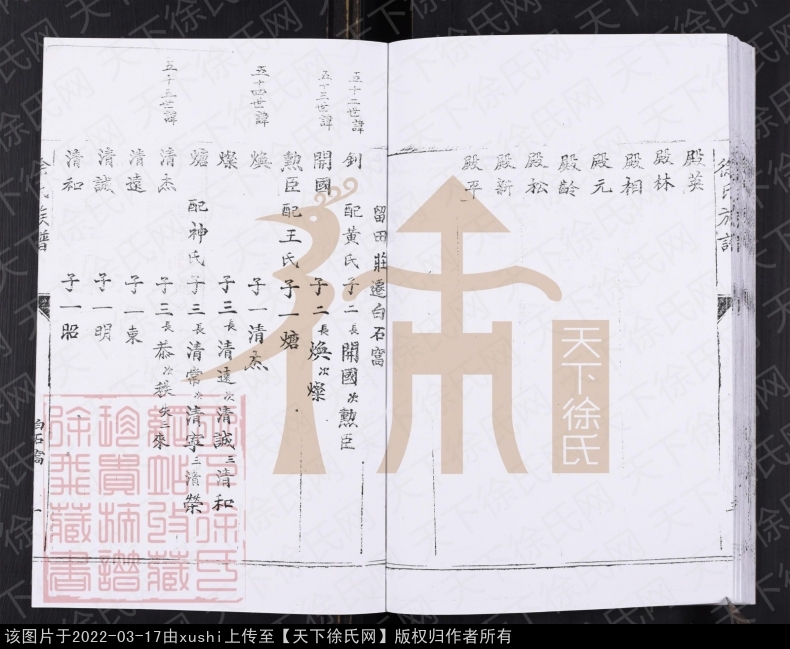 殿英
殿林
殿相
殿元
殿齡
殿松
殿新
殿平
徐氏族譜
留田莊遷白石窩
五十二世諱
釗 配黃氏 子二 長開國 次勲臣
五十三世諱
開國 子二 長煥 次燦
勲臣 配王氏 子一 熗
五十四世諱
煥 子一 清
燦 子三 長清遠 次清誠 三清和
配神氏 子三 長清常 次清寧 三清榮
五十五世諱
清杰 子三 長恭
清遠 子一 東
清誠 子一 明
清和 子一 昭
氏族譜
白石窩
一
天下徐氏
天下徐氏网
该图片于2022-03-17由xushi上传至【天下徐氏网】版权归作者所有